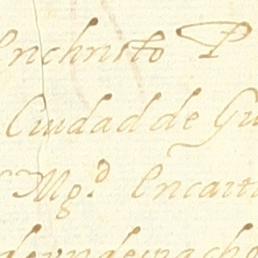 enchristo P
Ciudad de Gu
Mg.d Encarta
de un despacho